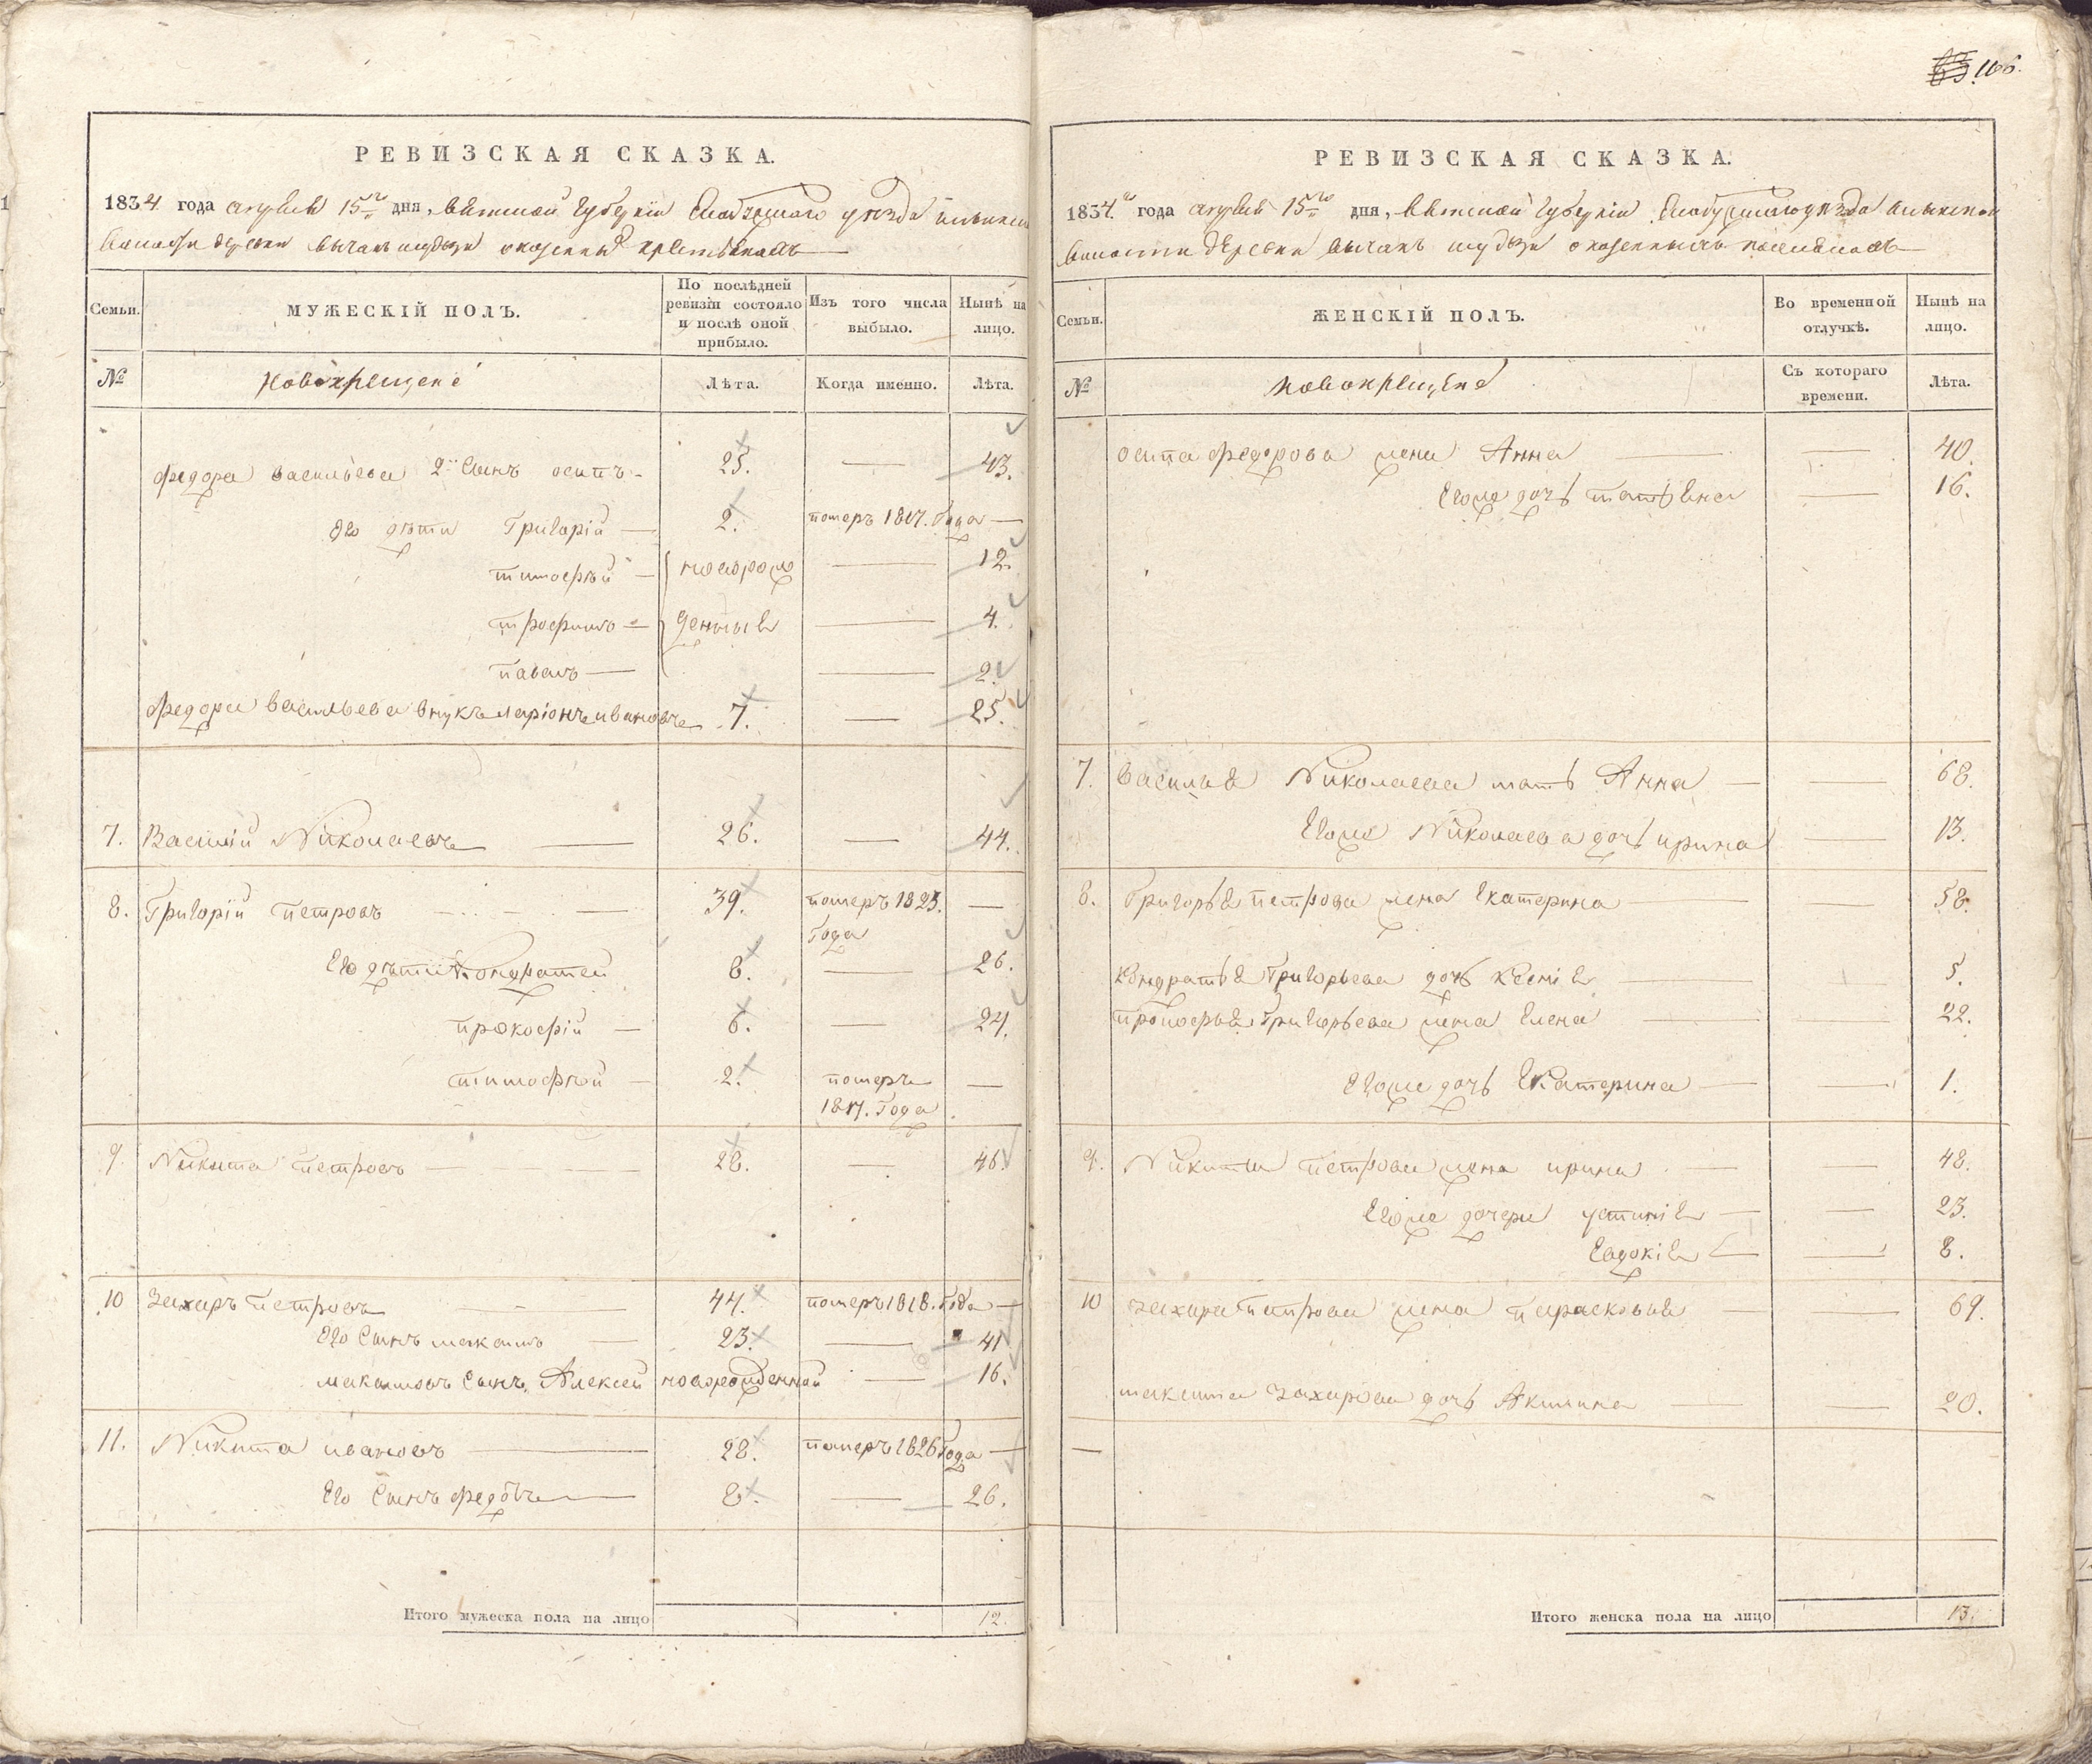 166.
РЕВИЗСКАЯ СКАЗКА.
1834 года августа 15го дня, Вятской Губернiи Елабужскаго уезда
волости деревни оказенныхъ крестьянахъ
Семьи.
МУЖЕСКIЙ ПОЛЪ.
По послѣдней ревизiи состояло и послѣ оной прибыло.
Изъ того числа выбыло.
Нынѣ на лицо.
№
Новокрещене
Лѣта.
Когда именно.
Лѣта.
Федора Васильева 2й Сынъ осипъ 25. — 43.
Его дѣти Григорiй — 2. померъ 1817. Года —
тимофѣй — новорож — 12.
трофимъ — денныи — 4.
павелъ — — 2.
Федора Васильева внукъ ларiонъ ивановъ 7. — 25.
7. Василiй Николаевъ — 26. — 44.
8. Григорiй петровъ — 39. померъ 1823. —
Года
Его дѣти Кондратей 8. — 26.
прокофiй — 6. — 24.
тимофѣй — 2. померъ —
1817. Года
9. Никита петровъ — 28. — 46.
10 Захаръ петровъ — 44. померъ 1818. Года —
Его Сынъ максимъ — 23. — 41
максимовъ Сынъ Алексей новорожденной — 16.
11. Никита ивановъ — 28. померъ 1826 Года —
Его Сынъ федотъ — 8. — 26.
Итого мужеска пола на лицо 12.
РЕВИЗСКАЯ СКАЗКА.
1834. года августа 15го дня, Вятской Губернiи Елабужскаго уезда
волости деревни оказенныхъ
Семьи.
ЖЕНСКIЙ ПОЛЪ.
Во временной отлучкѣ.
Нынѣ на лицо.
№
Новокрещене
Съ котораго времени.
Лѣта.
осипа федорова жена Анна — — 40.
Егоже дочь татьяна — 16.
7. Василья Николаева мать Анна — — 68.
Егоже Николаева дочь ирина — 13.
8. Григорья петрова жена Екатерина — — 58.
Кондратья Григорьева дочь Ксенiя — 5.
прокофья Григорьева жена Елена — — 22.
Егоже дочь Екатерина — — 1.
9. Никиты петрова жена ирина — — 48.
Егоже дочери устинiя — — 23.
Евдокiя — — 8.
10 Захара петрова жена парасковья — — 69.
максима Захарова дочь Акилина — — 20.
—
Итого женска пола на лицо 13.